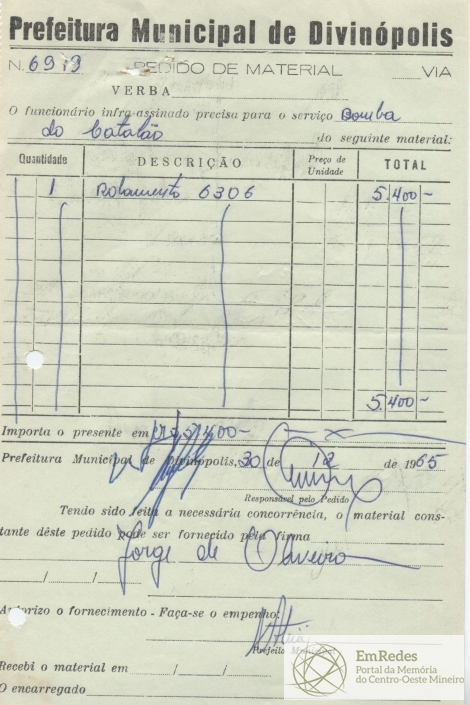 Prefeitura Municipal de Divinópolis
N. 6919 PEDIDO DE MATERIAL VIA
VERBA
O funcionário infra-assinado precisa para o serviço Bomba
do Catalão do seguinte material:
Quantidade DESCRIÇÃO Preço de Unidade TOTAL
1 Rolamento 6306 5.400-
5.400-
Importa o presente em 5.400-
Prefeitura Municipal de Divinópolis, 30 de 12 de 1965
Responsável pelo Pedido
Tendo sido feita a necessária concorrência, o material cons-
tante dêste pedido pode ser fornecido pela firma
Jorge de Oliveira
Autorizo o fornecimento - Faça-se o empenho.
Prefeito Municipal
Recebi o material em / /
O encarregado
EmRedes
Portal da Memória
do Centro-Oeste Mineiro